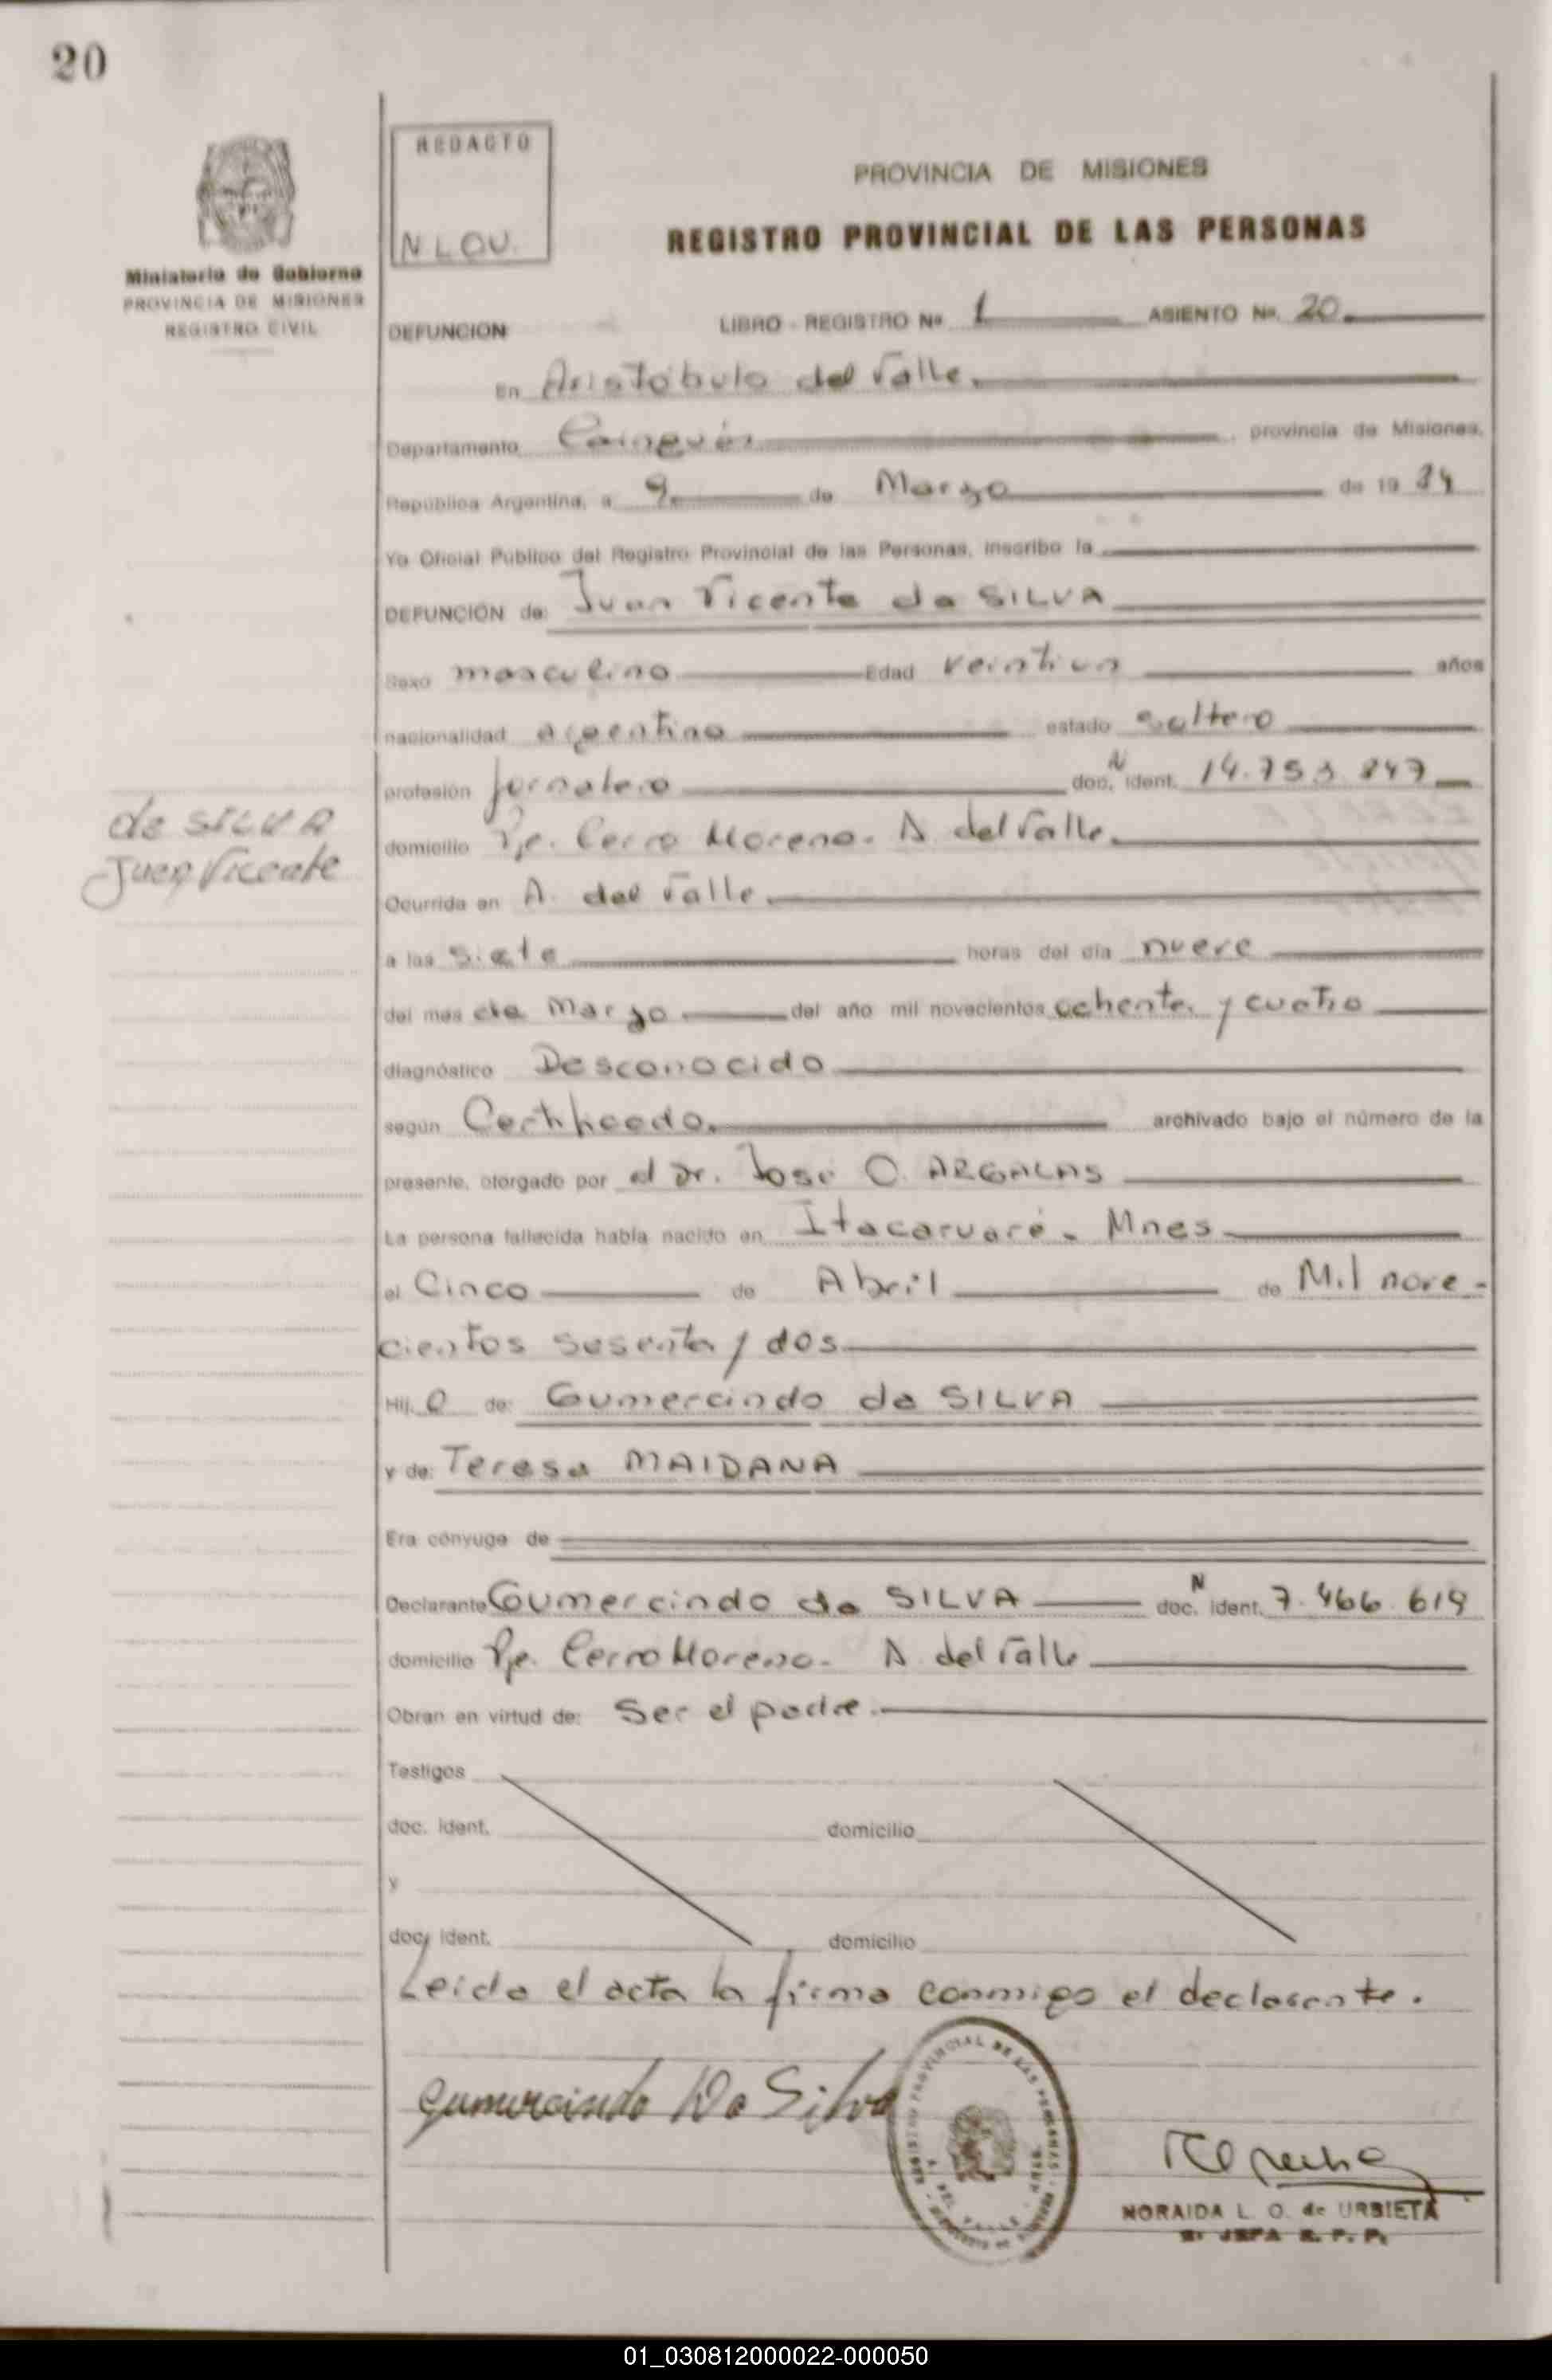 20
REDACTO
N L O U.
Ministerio de Gobierno
PROVINCIA DE MISIONES
REGISTRO CIVIL
PROVINCIA DE MISIONES
REGISTRO PROVINCIAL DE LAS PERSONAS
DEFUNCION LIBRO - REGISTRO Nº 1 ASIENTO Nº 20
En Aristóbulo del Valle.
Departamento Cainguás, provincia de Misiones,
República Argentina, a 9 de Marzo de 19 84
Yo Oficial Público del Registro Provincial de las Personas, inscribo la
DEFUNCIÓN de: Juan Vicente da SILVA
Sexo masculino Edad veintiun años
nacionalidad argentino estado soltero
profesión jornalero doc. N ident. 14.753.847
de SILVA
Juan Vicente
domicilio Pje. Cerro Moreno. A. del Valle.
Ocurrida en A. del Valle.
a las siete horas del día nueve
del mes de Marzo del año mil novecientos ochenta y cuatro
diagnóstico Desconocido
según Certificado. archivado bajo el número de la
presente, otorgado por el Dr. José O. ARGALAS
La persona fallecida había nacido en Itacaruaré - Mnes
el Cinco de Abril de Mil nove-
cientos sesenta y dos
Hijo de: Gumercindo da SILVA
y de: Teresa MAIDANA
Era cónyuge de
Declarante Gumercindo da SILVA doc. N ident. 7.466.619
domicilio Pje. Cerro Moreno - A. del Valle
Obran en virtud de: Ser el padre.
Testigos
doc. ident. domicilio
y
doc. ident. domicilio
Leida el acta la firma conmigo el declarante.
Gumercindo Da Silva
REGISTRO PROVINCIAL DE LAS PERSONAS
A. DEL VALLE
NORAIDA L. O. de URBIETA
JEFA R. P. P.
01_030812000022-000050